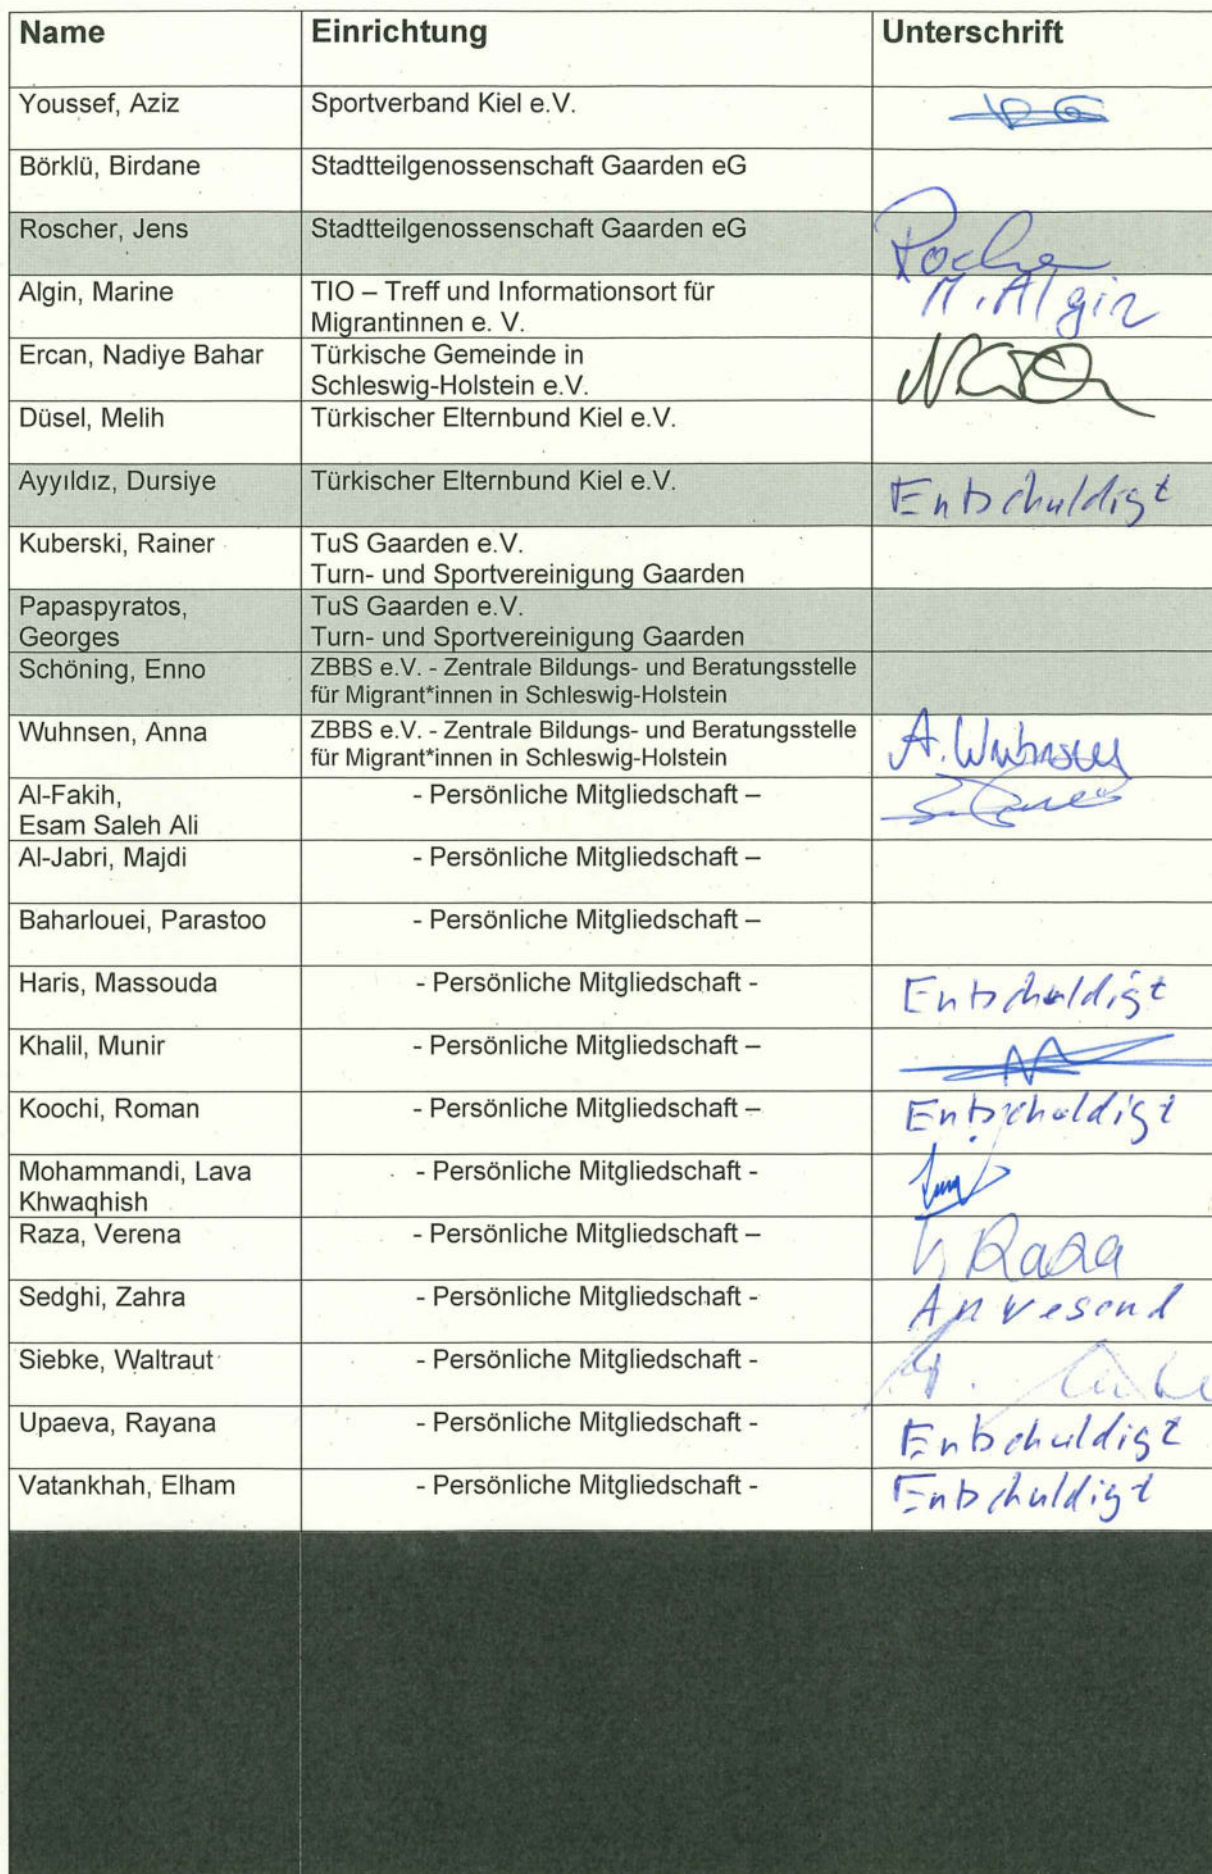 Name Einrichtung Unterschrift
Youssef, Aziz Sportverband Kiel e.V.
Börklü, Birdane Stadtteilgenossenschaft Gaarden eG
Roscher, Jens Stadtteilgenossenschaft Gaarden eG
Algin, Marine TIO – Treff und Informationsort für M. Algin
Migrantinnen e. V.
Ercan, Nadiye Bahar Türkische Gemeinde in
Schleswig-Holstein e.V.
Düsel, Melih Türkischer Elternbund Kiel e.V.
Ayyıldız, Dursiye Türkischer Elternbund Kiel e.V. Entschuldigt
Kuberski, Rainer TuS Gaarden e.V.
Turn- und Sportvereinigung Gaarden
Papaspyratos, TuS Gaarden e.V.
Georges Turn- und Sportvereinigung Gaarden
Schöning, Enno ZBBS e.V. - Zentrale Bildungs- und Beratungsstelle
für Migrant*innen in Schleswig-Holstein
Wuhnsen, Anna ZBBS e.V. - Zentrale Bildungs- und Beratungsstelle A. Wuhnsen
für Migrant*innen in Schleswig-Holstein
Al-Fakih, - Persönliche Mitgliedschaft –
Esam Saleh Ali
Al-Jabri, Majdi - Persönliche Mitgliedschaft –
Baharlouei, Parastoo - Persönliche Mitgliedschaft –
Haris, Massouda - Persönliche Mitgliedschaft - Entschuldigt
Khalil, Munir - Persönliche Mitgliedschaft –
Koochi, Roman - Persönliche Mitgliedschaft – Entschuldigt
Mohammandi, Lava - Persönliche Mitgliedschaft -
Khwaqhish
Raza, Verena - Persönliche Mitgliedschaft – V. Raza
Sedghi, Zahra - Persönliche Mitgliedschaft - Anwesend
Siebke, Waltraut - Persönliche Mitgliedschaft -
Upaeva, Rayana - Persönliche Mitgliedschaft - Entschuldigt
Vatankhah, Elham - Persönliche Mitgliedschaft - Entschuldigt